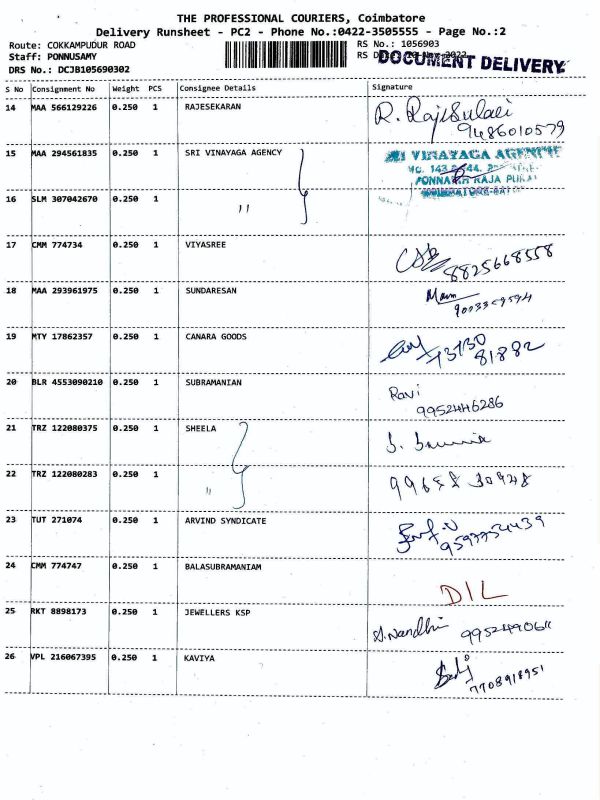 THE PROFESSIONAL COURIERS, Coimbatore
Delivery Runsheet - PC2 - Phone No.:0422-3505555 - Page No.:2
Route: COKKAMPUDUR ROAD
RS No.: 1056903
Staff: PONNUSAMY
RS
DOCUMENT DELIVERY
DRS No.: DCJB105690302
S No Consignment No Weight PCS Consignee Details Signature
14 MAA 566129226 0.250 1 RAJESEKARAN
9486010579
15 MAA 294561835 0.250 1 SRI VINAYAGA AGENCY
VINAYAGA
16 SLM 307042670 0.250 1 "
17 CMM 774734 0.250 1 VIYASREE
8825668558
18 MAA 293961975 0.250 1 SUNDARESAN
19 MTY 17862357 0.250 1 CANARA GOODS
73130
81882
20 BLR 4553090210 0.250 1 SUBRAMANIAN
Ravi
9952446286
21 TRZ 122080375 0.250 1 SHEELA
22 TRZ 122080283 0.250 1 "
23 TUT 271074 0.250 1 ARVIND SYNDICATE
24 CMM 774747 0.250 1 BALASUBRAMANIAM
DIL
25 RKT 8898173 0.250 1 JEWELLERS KSP
S.Nandhi
26 VPL 216067395 0.250 1 KAVIYA
7708918951